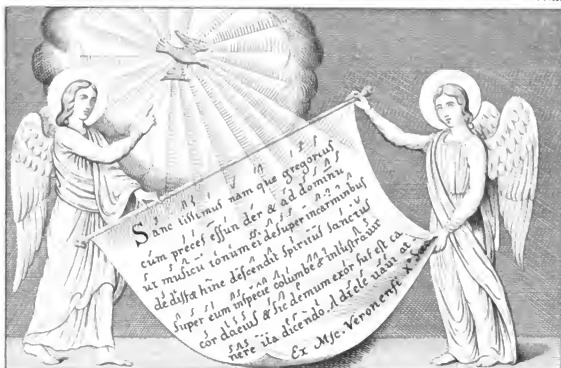 Sanc tissimus nam que gregorius
cum preces effun der & ad dominū
ut musicū tonum ei desuper incarminibus
hinc descendit spiritus sanctus
super eum inspecie columbe & inlustravit
cor daeius & sic demum exor sus est ca
nere ita dicendo. Ad te levavi
Ex Msc. Veronensi